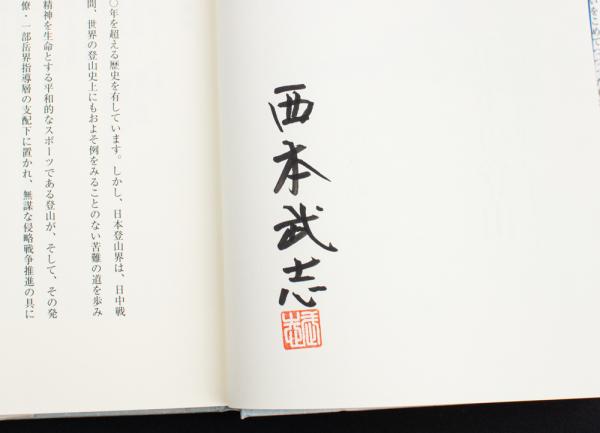 いをこめて
西本武志
武志
〇年を超える歴史を有しています。しかし、日本登山界は、日中戦
間、世界の登山史上にもおよそ例をみることのない苦難の道を歩み
精神を生命とする平和的なスポーツである登山が、そして、その発
僚・一部岳界指導層の支配下に置かれ、無謀な侵略戦争推進の具に